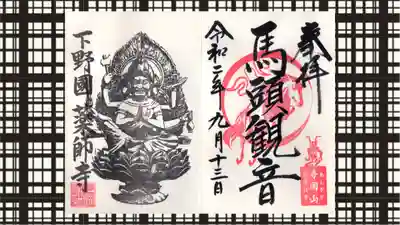 奉拝
馬頭観音
令和二年九月十三日
下野國薬師寺